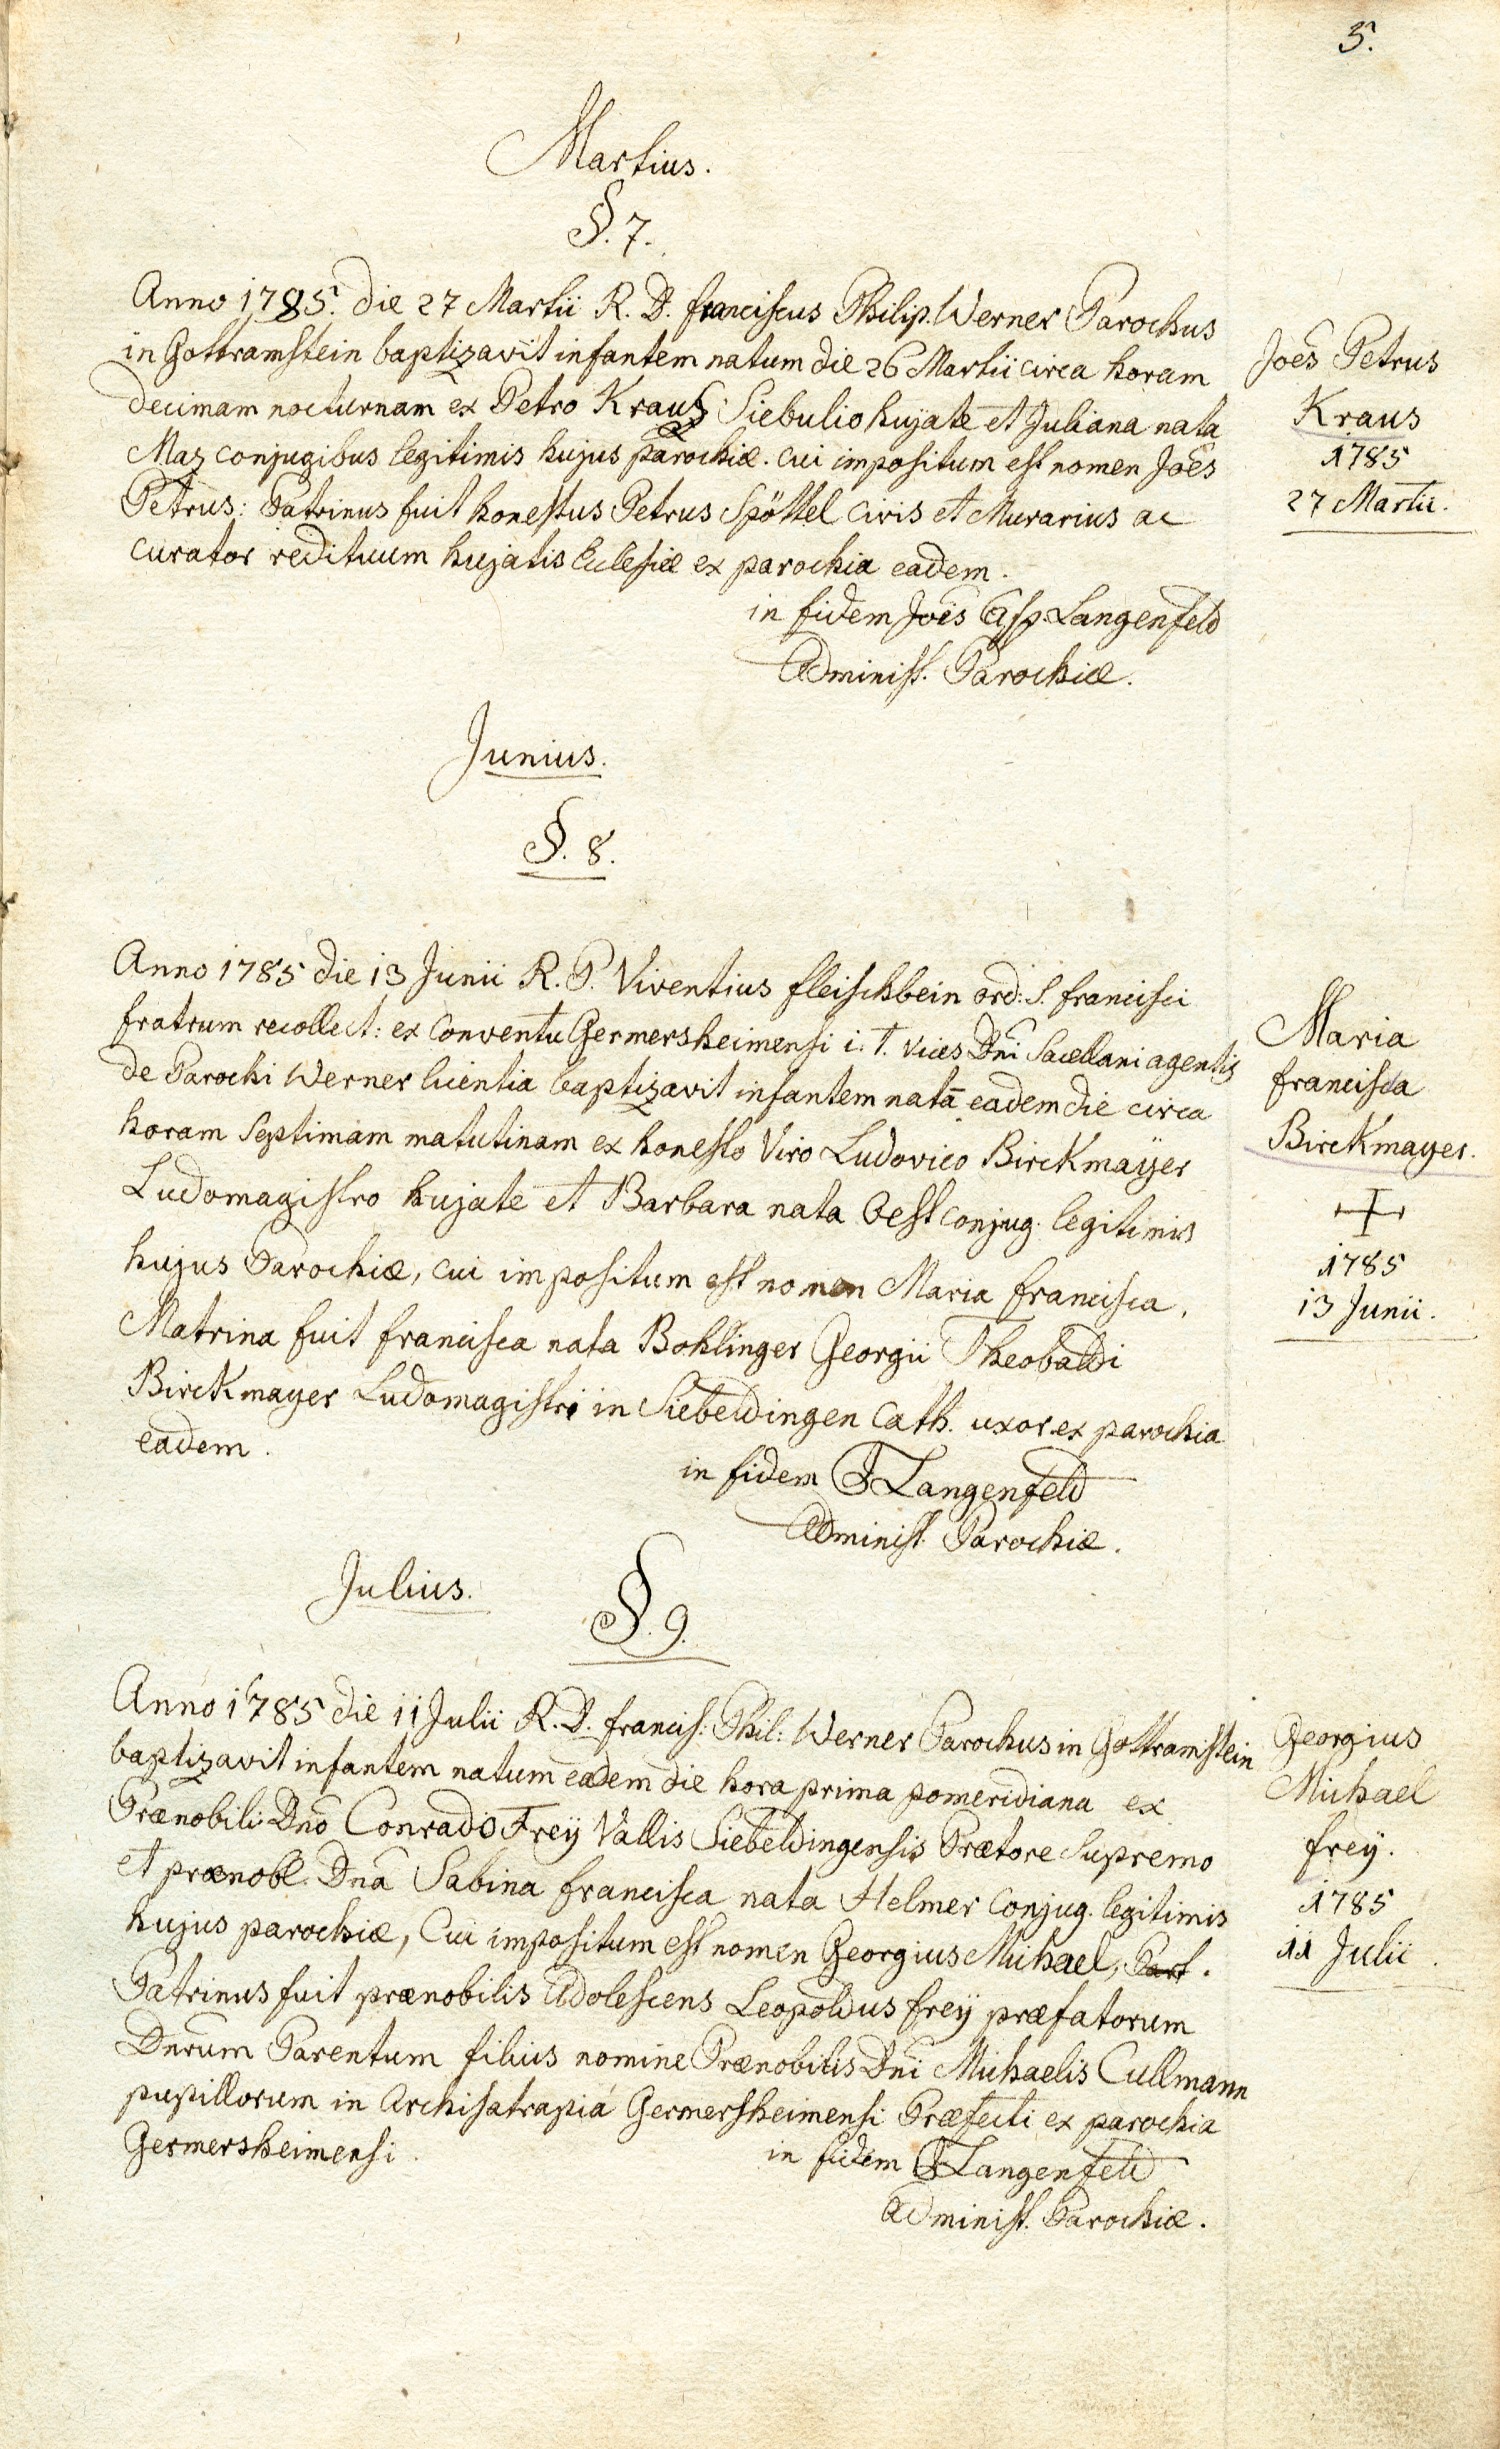 5.
Martius.
§. 7.
Anno 1785. die 27 Martii R. D. franciscus Philip. Werner Parochus
in Gottramstein baptizavit infantem natum die 26 Martii circa horam
decimam nocturnam ex Petro Kraus Siebulio hujate et Juliana nata
Maz conjugibus legitimis hujus parochiæ. cui impositum est nomen Joês
Petrus: Patrinus fuit honestus Petrus Spöttel civis et Murarius ac
curator redituum hujatis Eclesiæ ex parochia eadem.
in fidem Joês Casp. Langenfeld
Administ. Parochiæ.
Joês Petrus
Kraus
1785
27 Martii.
Junius.
§. 8.
Anno 1785 die 13 Junii R. P. Viventius fleischbein ord: S. francisci
fratrum recollect: ex Conventu Germersheimensi i. t. vices Dni Sacellani agentis
de Parochi Werner licentia baptizavit infantem natā eadem die circa
horam Septimam matutinam ex honesto Viro Ludovico Birckmaÿer
Ludomagistro hujate et Barbara nata Oest conjug. legitimis
hujus Parochiæ, cui impositum est nomen Maria francisca.
Matrina fuit francisca nata Bohlinger Georgii Theobaldi
Birckmayer Ludomagistri in Siebeldingen Cath. uxor ex parochia
eadem.
in fidem J Langenfeld
Administ. Parochiæ.
Maria
francisca
Birckmayer.
1785
13 Junii.
Julius.
§. 9.
Anno 1785 die 11 Julii R. D. francis: Phil: Werner Parochus in Gottramstein
baptizavit infantem natum eadem die hora prima pomeridiana ex
Prænobili Dno Conrado Freÿ Vallis Siebeldingensis Prætore Supremo
et prænobl. Dna Sabina francisca nata Helmer conjug. legitimis
hujus parochiæ, Cui impositum est nomen Georgius Michael,
Patrinus fuit prænobilis Adolescens Leopoldus freÿ præfatorum
Dnrum Parentum filius nomine Prænobilis Dni Michaelis Cullmann
pupillorum in Archisatrapiá Germersheimensi Præfecti ex parochia
Germersheimensi.
in fidem J Langenfeld
Administ. Parochiæ.
Georgius
Michael
freÿ.
1785
11 Julii.